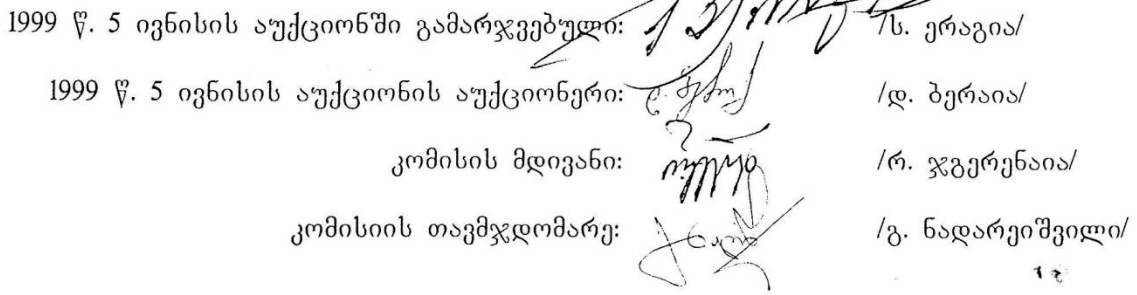 1999 წ. 5 ივნისის აუქციონში გამარჯვებული: /ს. ერაგია/
1999 წ. 5 ივნისის აუქციონის აუქციონერი: /დ. ბერაია/
კომისის მდივანი: /რ. ჯგერენაია/
კომისიის თავმჯდომარე: /გ. ნადარეიშვილი/